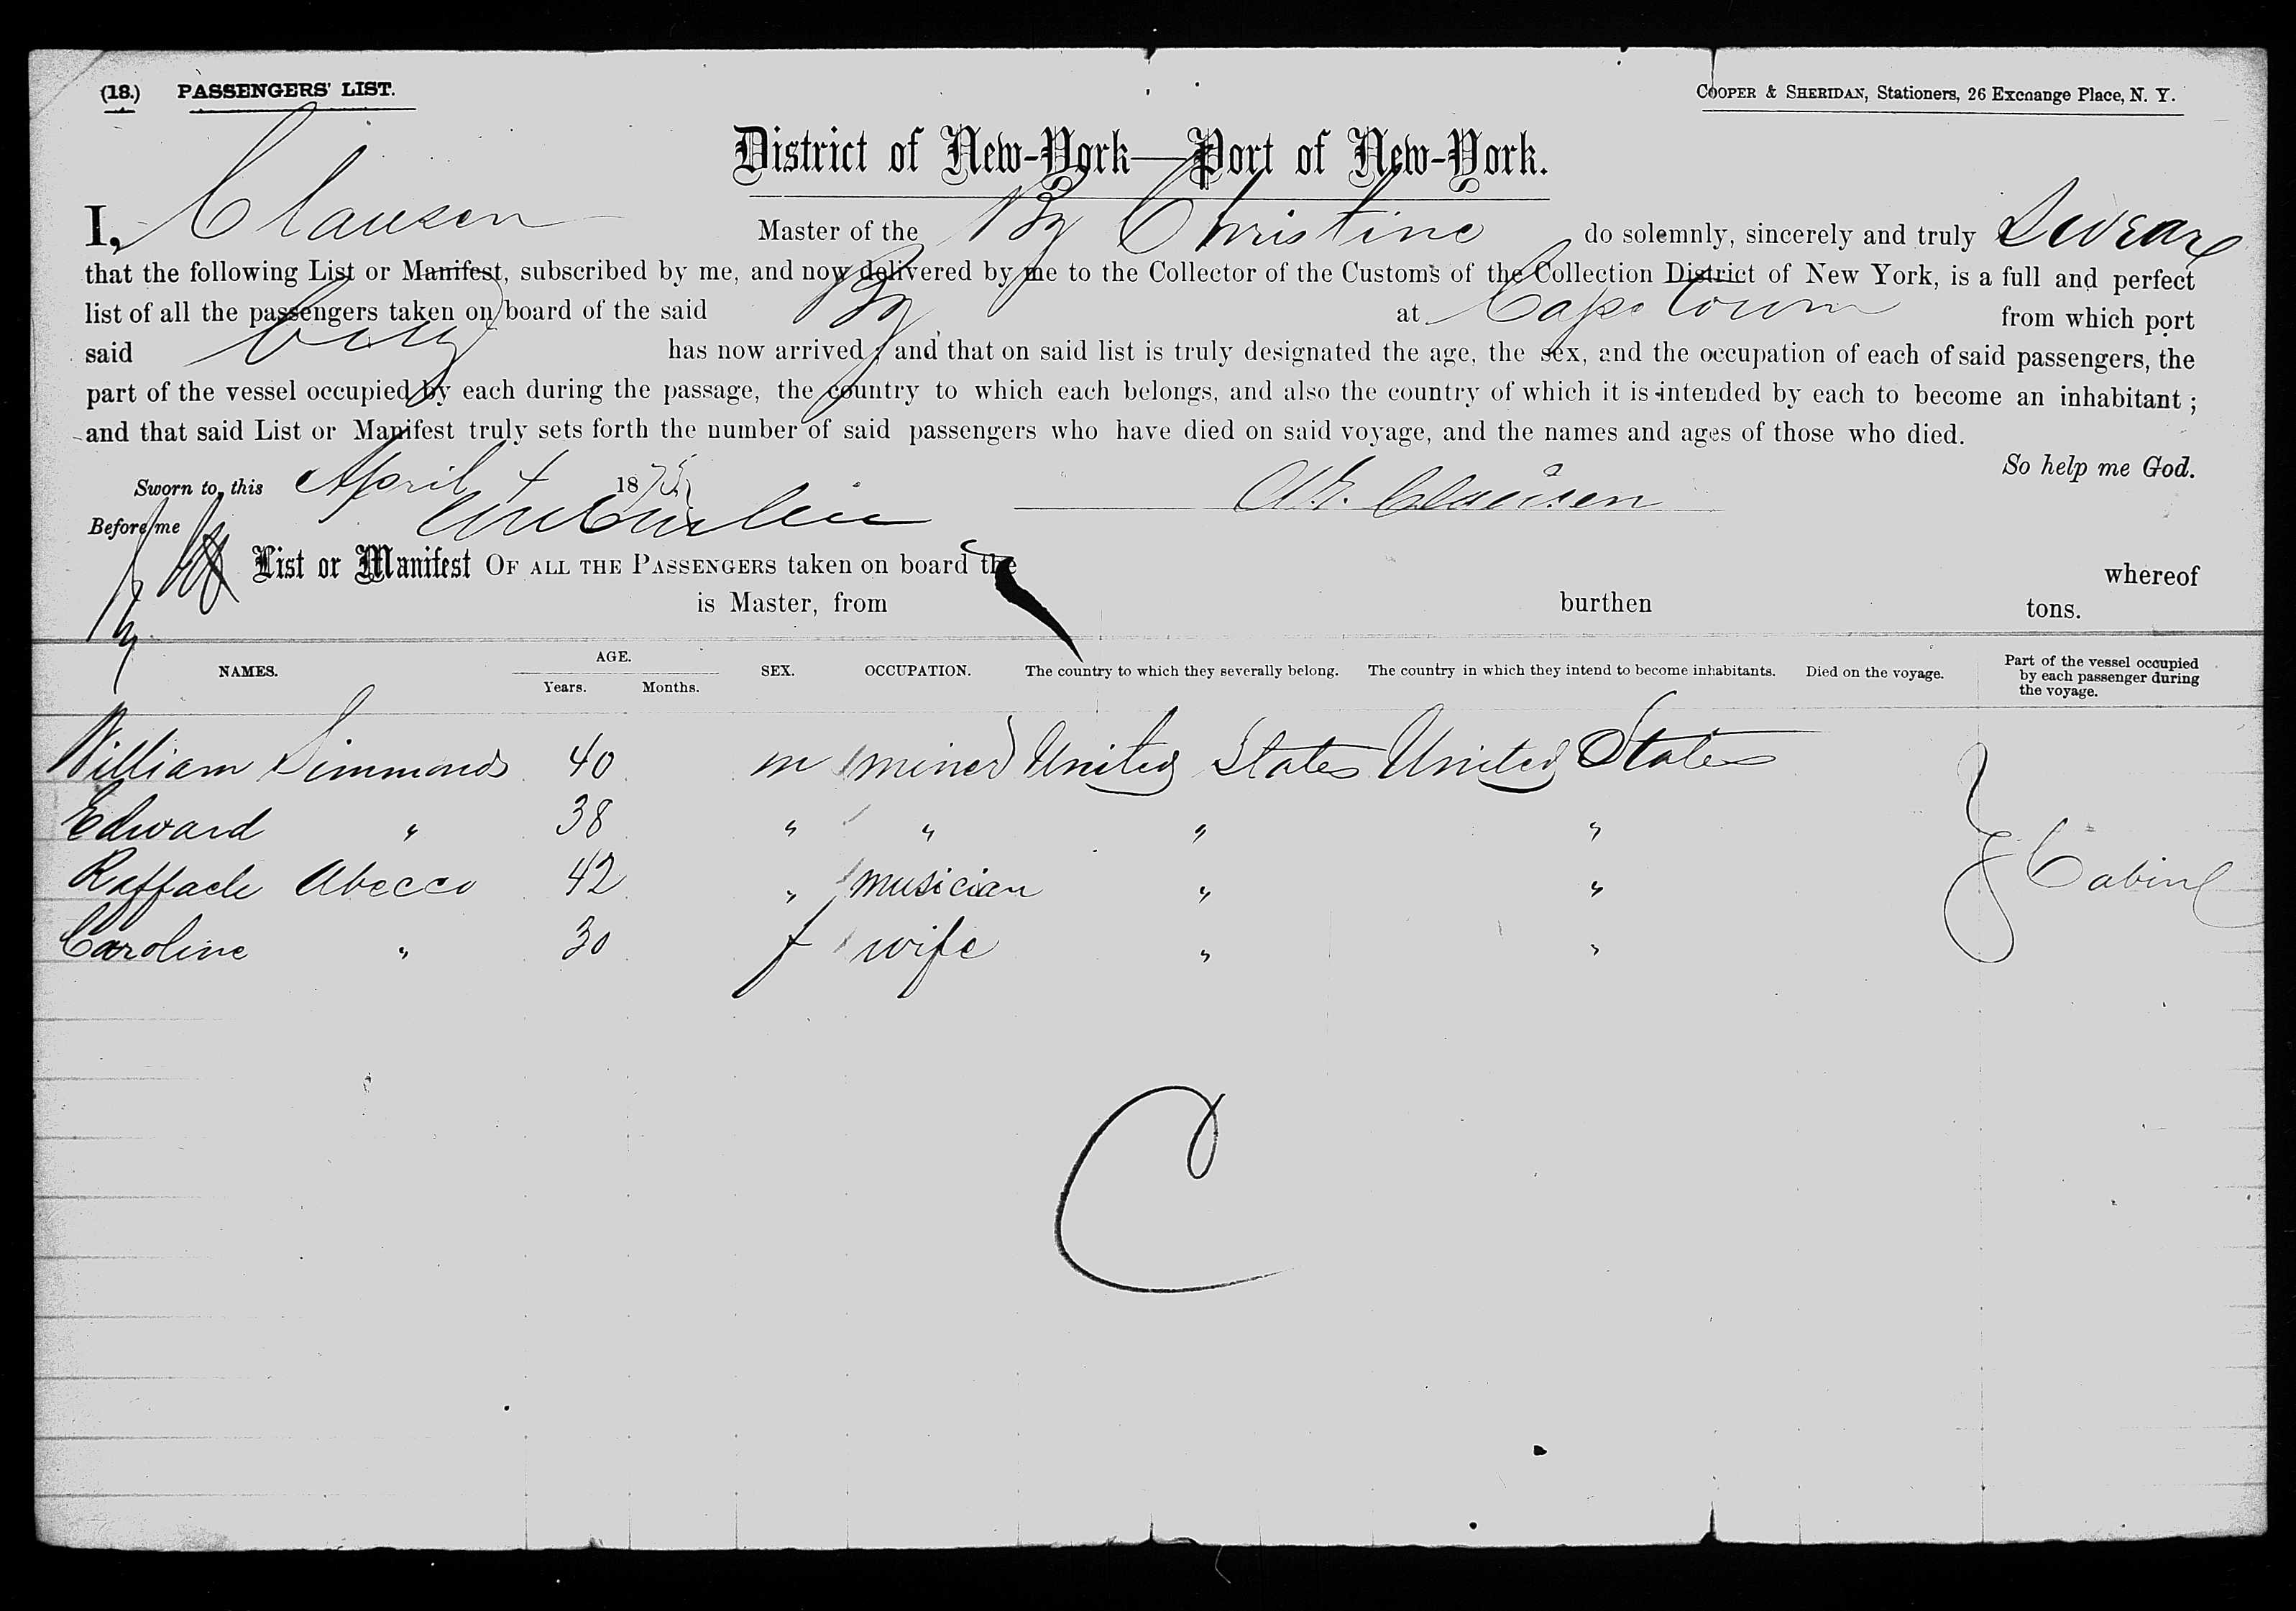 (18.) PASSENGERS' LIST.
COOPER & SHERIDAN, Stationers, 26 Exchange Place, N. Y.
District of New-York—Port of New-York.
I, Clausen Master of the Bg Christine do solemnly, sincerely and truly Swear
that the following List or Manifest, subscribed by me, and now delivered by me to the Collector of the Customs of the Collection District of New York, is a full and perfect
list of all the passengers taken on board of the said Bg at Cape Town from which port
said Brig has now arrived; and that on said list is truly designated the age, the sex, and the occupation of each of said passengers, the
part of the vessel occupied by each during the passage, the country to which each belongs, and also the country of which it is intended by each to become an inhabitant;
and that said List or Manifest truly sets forth the number of said passengers who have died on said voyage, and the names and ages of those who died.
So help me God.
Sworn to this April 4 1875
Before me
Clausen
List or Manifest OF ALL THE PASSENGERS taken on board the whereof
is Master, from burthen tons.
NAMES. AGE. Years. Months. SEX. OCCUPATION. The country to which they severally belong. The country in which they intend to become inhabitants. Died on the voyage. Part of the vessel occupied by each passenger during the voyage.
William Simmonds 40 m miner United States United States
Edward " 38 " " " "
Raffaele Abecco 42 " musician " " Cabin
Caroline " 30 f wife " "
C